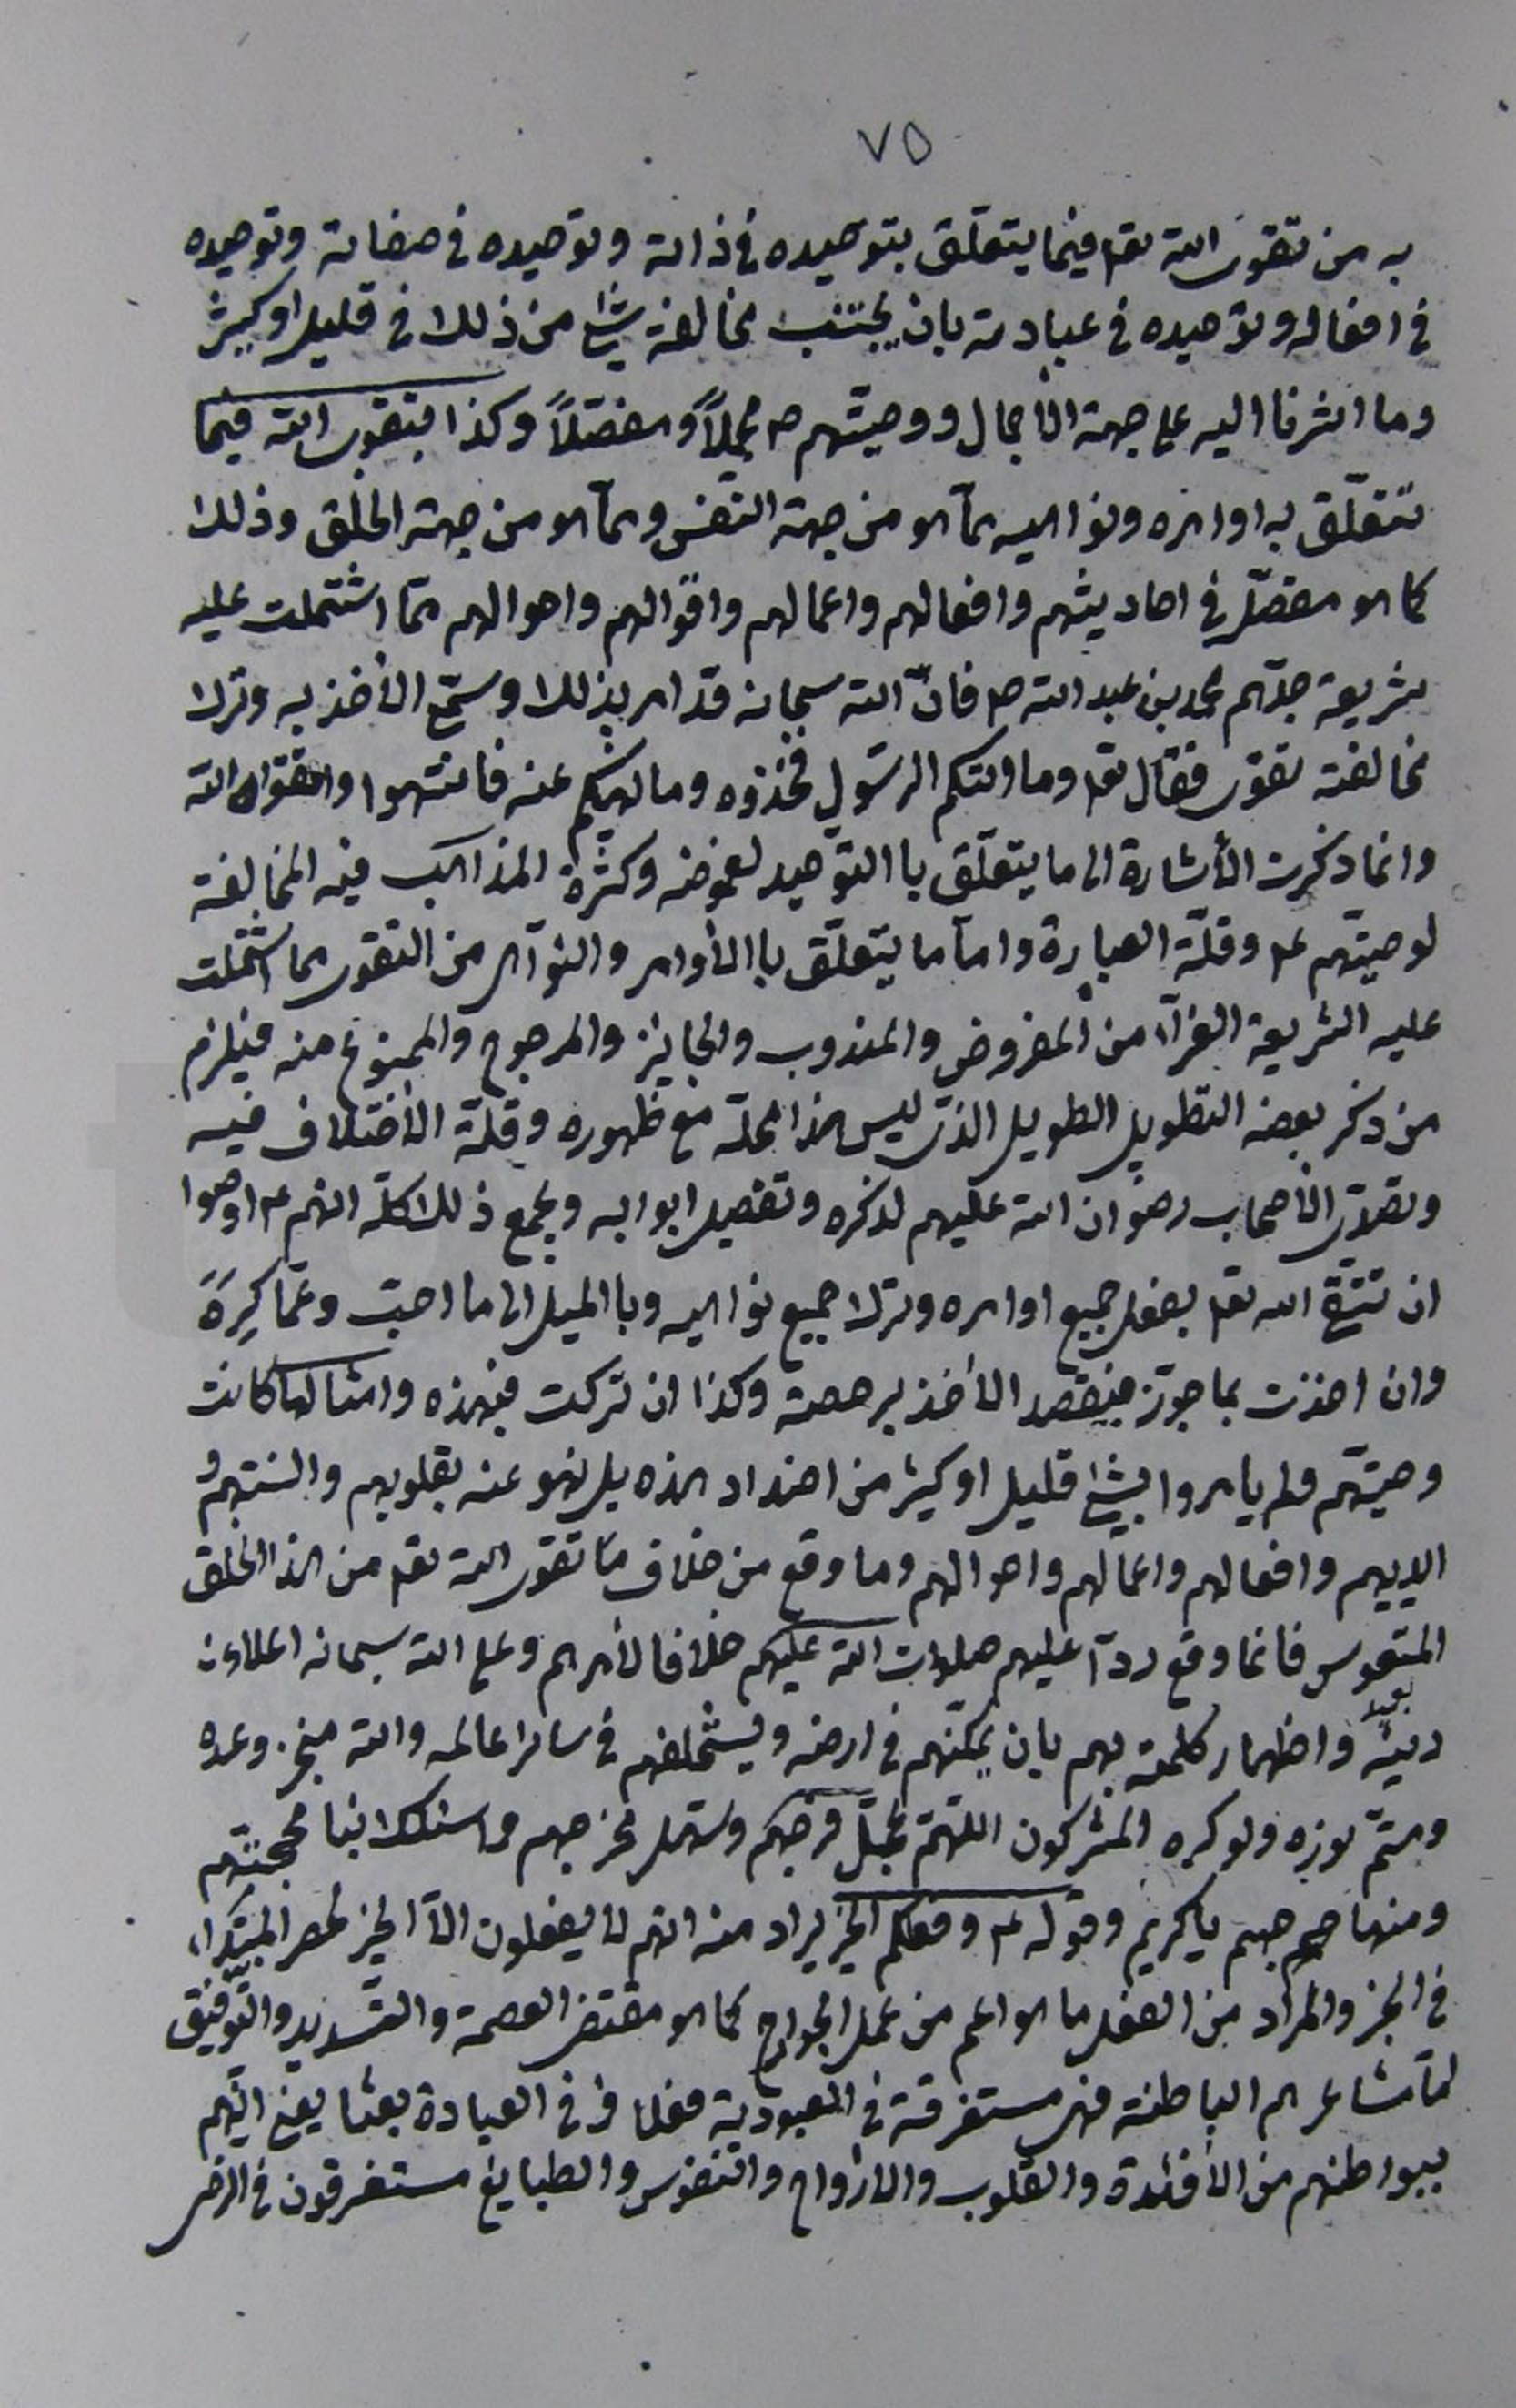 ٧٥
به من تقوى الله تعا فيما يتعلّق بتوحيده في ذاته وتوحيده في صفاته وتوحيده
في افعاله وتوحيده في عبادته بان يجتنب مخالفة شئ من ذلك في قليل او كثير
وما اشرنا اليه على جهة الأجمال ووصيّتهم ص مجملاً ومفصّلاً وكذا بتقوى الله فيما
تتعلّق به اوامره ونواهيه مما هو من جهة النفس ومما هو من جهة الخلق وذلك
كما هو مفصّل في احاديثهم وافعالهم واعمالهم واقوالهم واحوالهم ممّا اشتملت عليه
شريعة جدّهم محمد بن عبد الله ص فانّ الله سبحانه قد امر بذلك وسمّى الأخذ به وترك
مخالفته تقوى فقال تعا وما اتيكم الرسول فخذوه وما نهيكم عنه فانتهوا واتقوا الله
وانما ذكرت الأشارة الى ما يتعلّق باالتوحيد لغموضه وكثرة المذاهب فيه المخالفة
لوصيّتهم ع وقلّة العبارة وامّا ما يتعلّق باالأوامر والنواهى من التقوى مما اشتملت
عليه الشريعة الغرّاء من المفروض والمندوب والجايز والمرجوح والممنوع منه فيلزم
من ذكر بعضه التطويل الطويل الذى ليس هذا محلّه مع ظهوره وقلّة الأختلاف فيه
وتصدّى الأصحاب رضوان الله عليهم لذكره وتفصيل ابوابه ويجمع ذلك كلّه انهم ع اوصوا
ان تتّقى الله تعا بفعل جميع اوامره وترك جميع نواهيه وباالميل الى ما احبّ وعمّا كره
وان اخذت بما جوّز فبقصد الأخذ برخصته وكذا ان تركت فبهذه وامثالها كانت
وصيّتهم ولم يامروا بشئ قليل او كثير من اضداد هذه بل نهو عنه بقلوبهم والسنتهم و
ايديهم وافعالهم واعمالهم واحوالهم وما وقع من خلاف ما تقوى الله تعا من هذا الخلق
المتعوس فانما وقع ردّاً عليهم صلوات الله عليهم خلافا لأمرهم وعلى الله سبحانه اعلاء
دينه بهم واظهار كلمته بهم بان يمكّنهم في ارضه ويستخلفهم في ساير عالمه والله منجز وعده
ومتمّ نوره ولو كره المشركون اللهمّ عجّل فرجهم وسهّل مخرجهم واسلك بنا محجّتهم
ومنهاجهم يا كريم وقوله ع وفعلكم الخير يراد منه انهم لا يفعلون الّا الخير لحصر المبتدا
في الخبر والمراد من الفعل ما هو اعم من عمل الجوارح كما هو مقتضى العصمة والتسديد والتّوفيق
امّا مشاعرهم الباطنة فهى مستغرقة في العبودية فضلا عن العبادة بعثا يعنى انّهم
ببواطنهم من الأفئدة والقلوب والارواح والنفوس والطبايع مستغرقون في الرضى